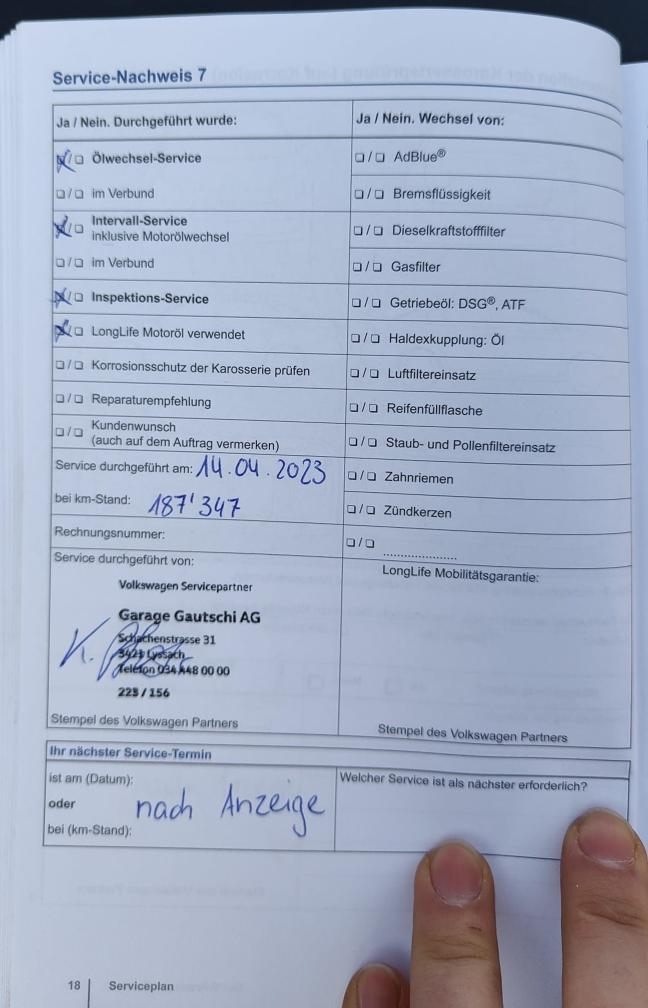 Service-Nachweis 7
Ja / Nein. Durchgeführt wurde:
☒/☐ Ölwechsel-Service
☐/☐ im Verbund
☒/☐ Intervall-Service
inklusive Motorölwechsel
☐/☐ im Verbund
☒/☐ Inspektions-Service
☒/☐ LongLife Motoröl verwendet
☐/☐ Korrosionsschutz der Karosserie prüfen
☐/☐ Reparaturempfehlung
☐/☐ Kundenwunsch
(auch auf dem Auftrag vermerken)
Service durchgeführt am: 14.04.2023
bei km-Stand: 187'347
Rechnungsnummer:
Service durchgeführt von:
Volkswagen Servicepartner
Garage Gautschi AG
Schachenstrasse 31
3421 Lyssach
Telefon 034 448 00 00
223 / 156
Stempel des Volkswagen Partners
Ja / Nein. Wechsel von:
☐/☐ AdBlue®
☐/☐ Bremsflüssigkeit
☐/☐ Dieselkraftstofffilter
☐/☐ Gasfilter
☐/☐ Getriebeöl: DSG®, ATF
☐/☐ Haldexkupplung: Öl
☐/☐ Luftfiltereinsatz
☐/☐ Reifenfüllflasche
☐/☐ Staub- und Pollenfiltereinsatz
☐/☐ Zahnriemen
☐/☐ Zündkerzen
☐/☐ ....................
LongLife Mobilitätsgarantie:
Stempel des Volkswagen Partners
Ihr nächster Service-Termin
ist am (Datum):
oder nach Anzeige
bei (km-Stand):
Welcher Service ist als nächster erforderlich?
18 Serviceplan